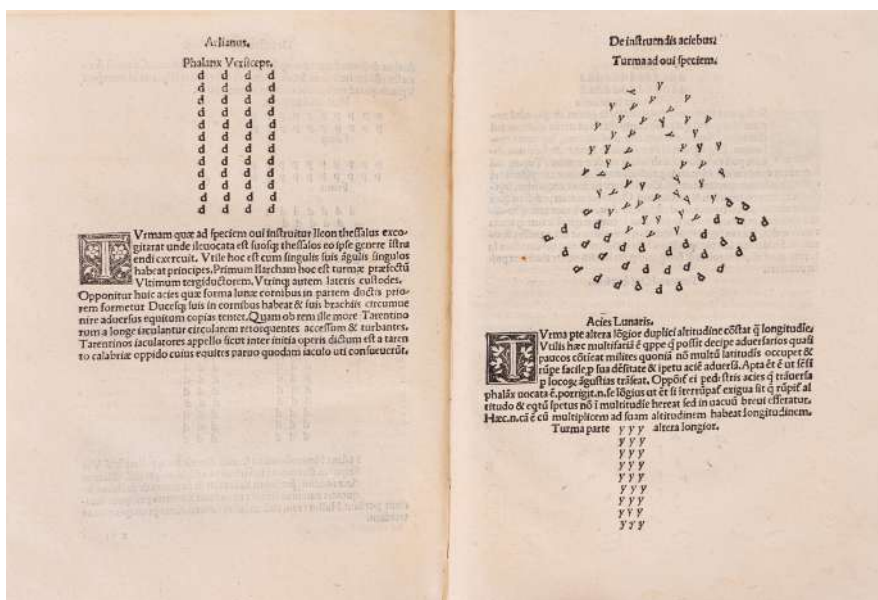 Aelianus.
Phalanx Versiscept.
d d d d
d d d d
d d d d
d d d d
d d d d
d d d d
d d d d
d d d d
d d d d
d d d d
d d d d
d d d d
TVrmam quæ ad speciem oui instruitur Ileon thessalus exco-
gitarat unde ileuocata est suosq; thessalos eo ipse genere istru
endi exercuit. Vtile hoc est cum singulis suis águlis singulos
habeat principes. Primum Ilarcham hoc est turmæ præfectũ
Vltimum tergiductorem. Vtrinq; autem lateris custodes.
Opponitur huic acies quæ forma lunæ cornibus in partem ductis prio-
rem formetur Ducesq; suis in cornibus habeat & suis brachiis circumue
nire aduersus equitum copias tentet. Quam ob rem ille more Tarentino
rum a longe iaculantur circularem retorquentes accessum & turbantes.
Tarentinos iaculatores appello sicut inter initia operis dictum est a taren
to calabriæ oppido cuius equites paruo quodam iaculo uti consueuerũt.
De instruendis aciebus.
Turma ad oui speciem.
Acies Lunaris.
TVrma pte altera lõgior duplici altitudine cõstat q̃ longitudie.
Vtilis hæc multifariã ẽ qppe q̃ possit decipe aduersarios quasi
paucos cõticeat milites quoniã nõ multũ latitudis occupet &
rũpe facile p sua dẽsitate & ipetu aciẽ aduersã. Apta ẽt ẽ ut
p locoȝ águstias trãseat. Oppõit ei pedestris acies q̃ trãuersa
phalãx uocata ẽ. porrigit. n. se lõgius ut et si iterrũpat exigua sit q̃ rũpit al
titudo & eqtũ ipetus nõ i multitudie hereat sed in uacuũ breui efferatur.
Hæc. n. cã ẽ cũ multiplicem ad suam altitudinem habeat longitudinem.
Turma parte y y y altera longior.
y y y
y y y
y y y
y y y
y y y
y y y
y y y
y y y